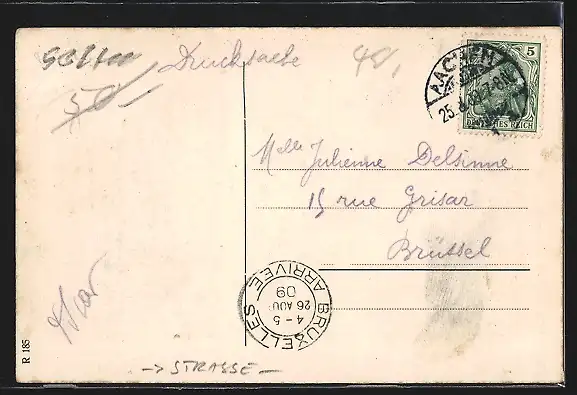 Drucksache
40,
50
5
DEUTSCHES REICH
AACHEN
25.8.09.7-8.N.
Melle Julienne Delsinne
15 rue Grisar
Brüssel
BRUXELLES
4-5
26 AOU
09
ARRIVEE
R 185
→ STRASSE –